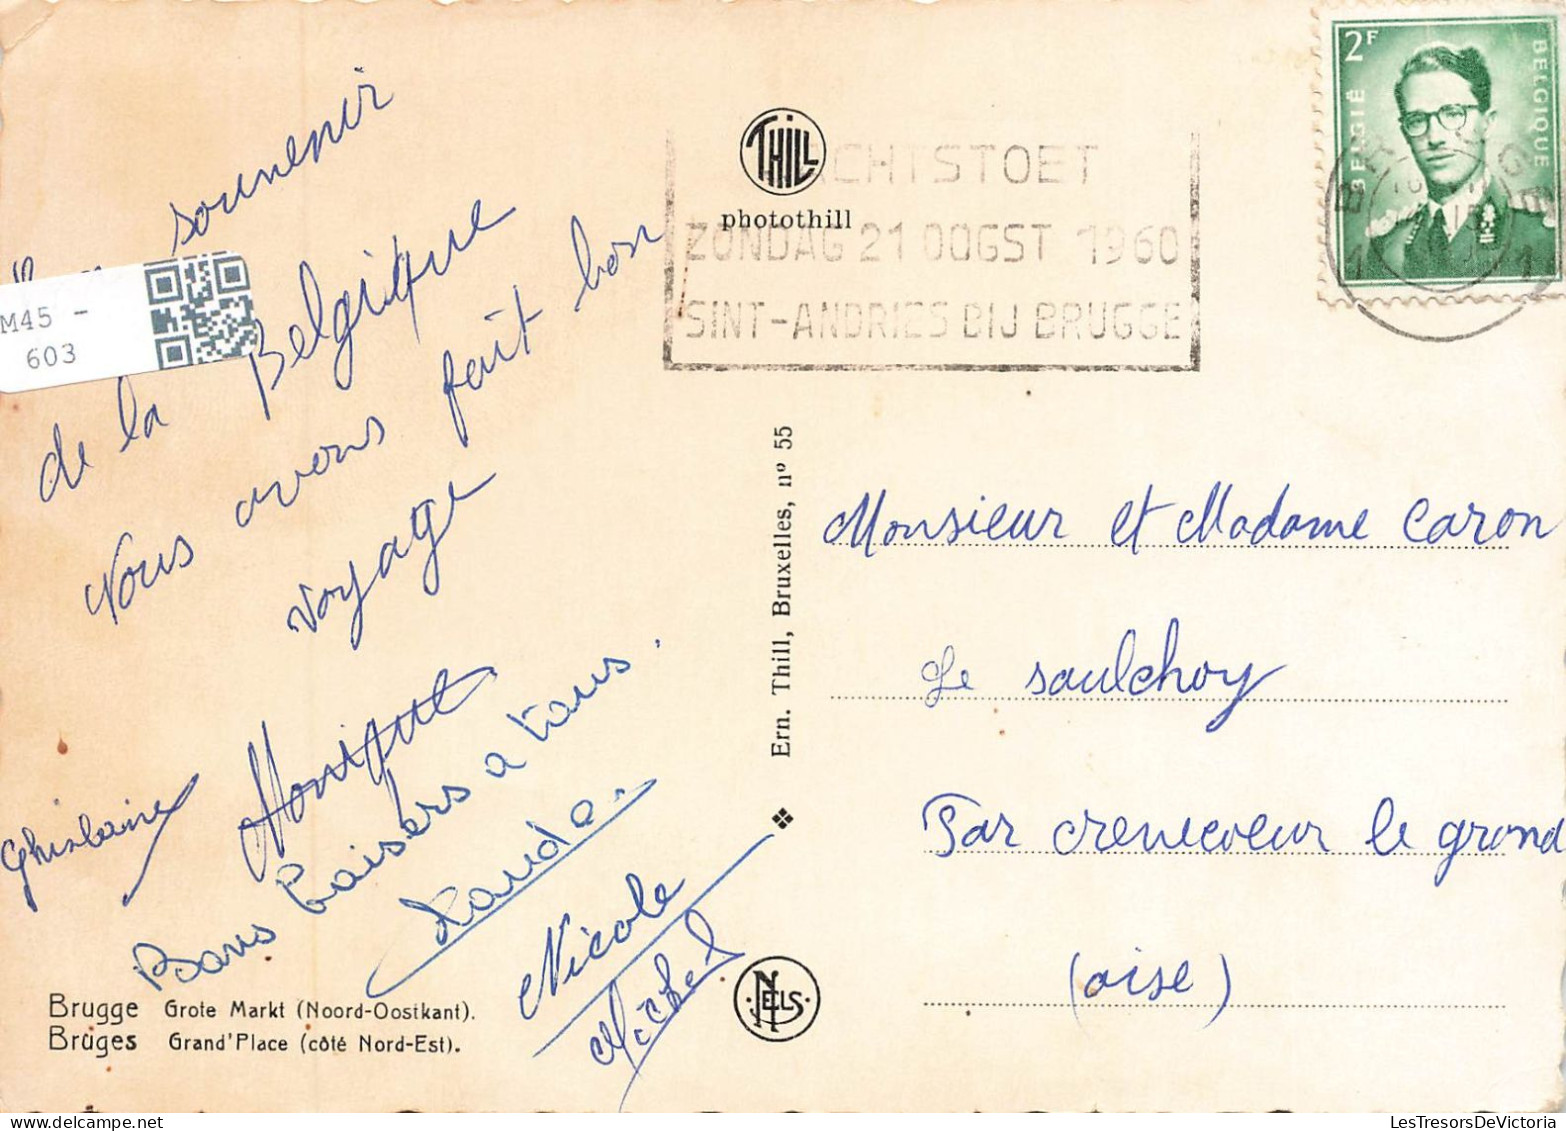 souvenir
de la Belgique
Nous avons fait bon
voyage
Ghislaine
Monique
Bons baisers a tous.
Nicole
Michel
M45 -
603
THILL
photothill
CHTSTOET
ZONDAG 21 OOGST 1960
SINT-ANDRIES BIJ BRUGGE
2F
BELGIË
BELGIQUE
BRUGGE
1
1
Ern. Thill, Bruxelles, nº 55
Monsieur et Madame Caron
Le saulchoy
Par crevecoeur le grand
(oise)
Brugge Grote Markt (Noord-Oostkant).
Brüges Grand'Place (côté Nord-Est).
NELS
LesTresorsDeVictoria